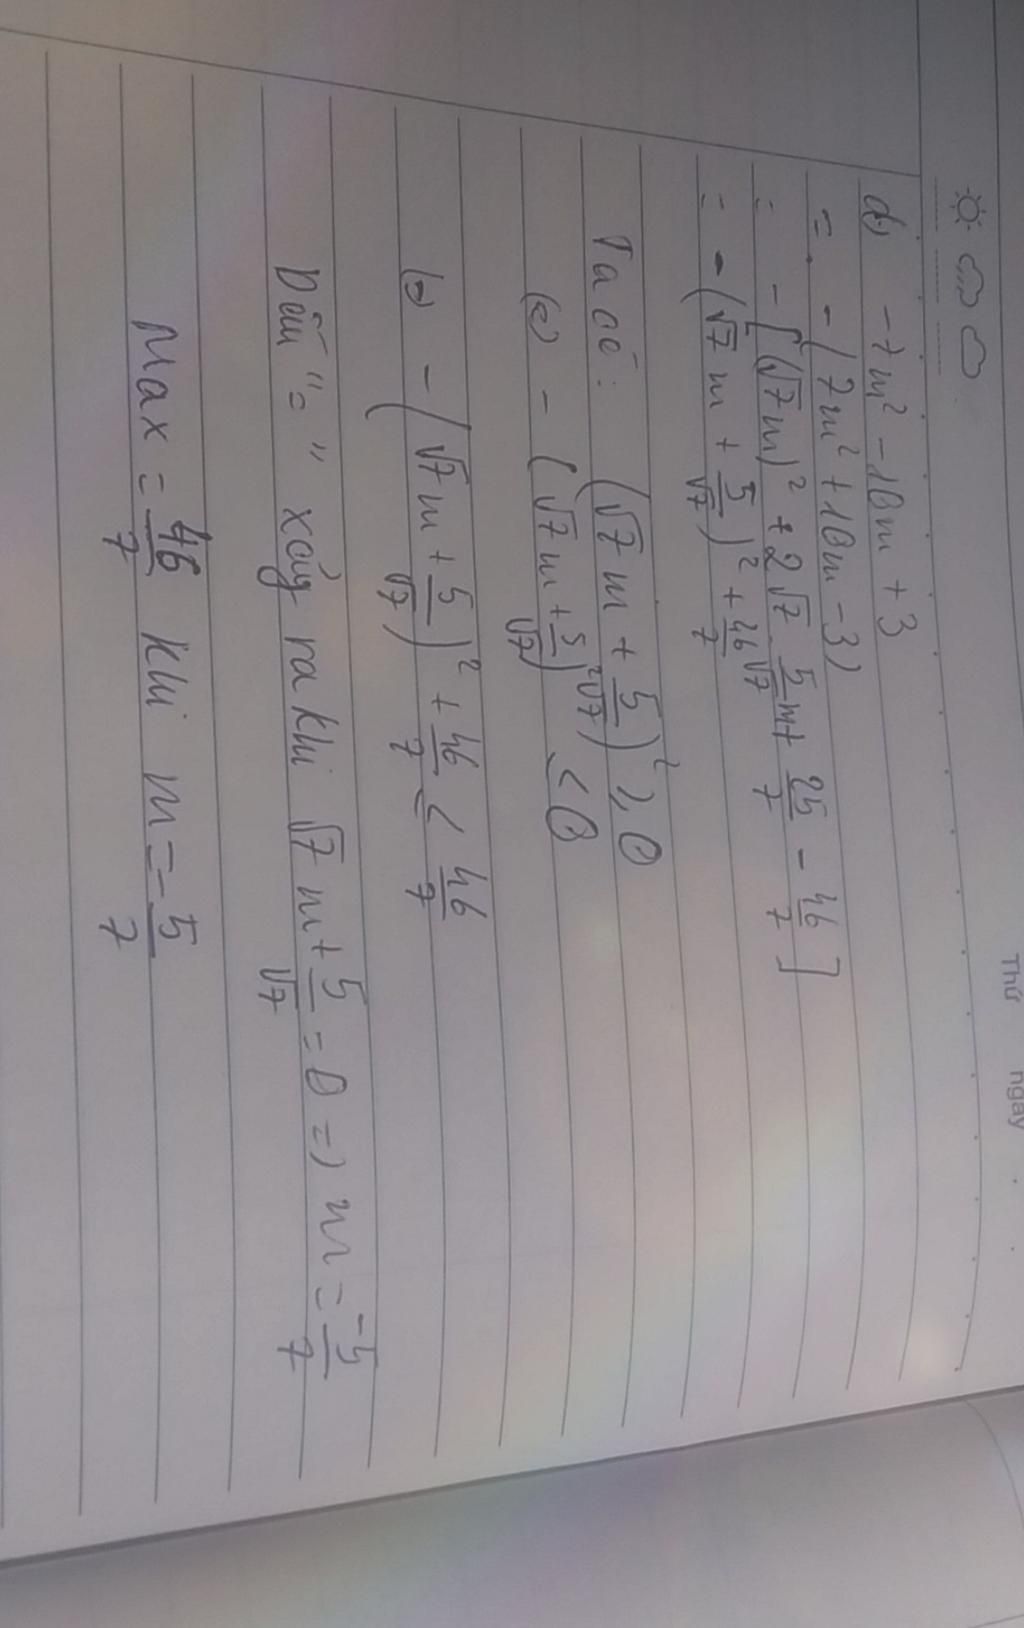 Thứ ngày
d) -7m² - 10m + 3
= - (7m² + 10m - 3)
= - [(√7m)² + 2√7 5/√7 m + 25/7 - 46/7]
= - (√7m + 5/√7)² + 46/7
Ta có: (√7m + 5/√7)² ≥ 0
(=) - (√7m + 5/√7)² ≤ 0
(=) - (√7m + 5/√7)² + 46/7 ≤ 46/7
Dấu "=" xảy ra khi √7m + 5/√7 = 0 => m = -5/7
Max = 46/7 khi m = -5/7